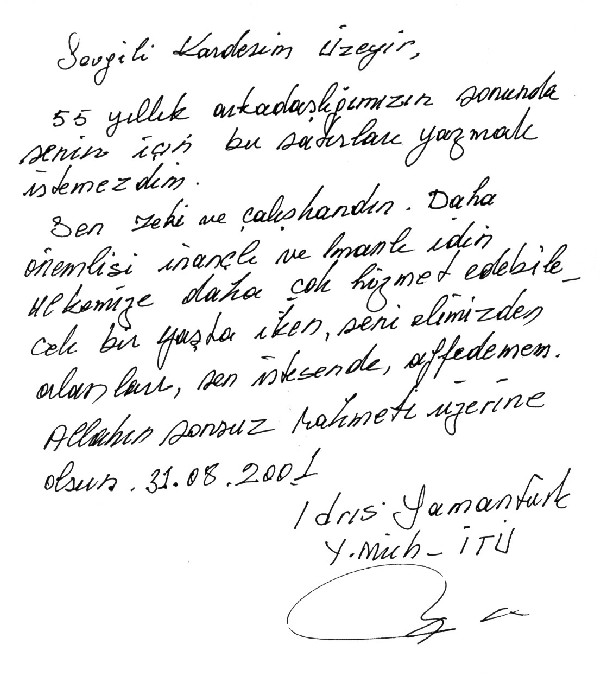 Sevgili Kardeşim Üzeyir,
55 yıllık arkadaşlığımızın sonunda
senin için bu satırları yazmak
istemezdim.
Sen zeki ve çalışkandın. Daha
önemlisi inançlı ve İmanlı idin
ülkemize daha çok hizmet edebile_
cek bir yaşta iken, seni elimizden
alanları, sen istesende, affedemem.
Allahın sonsuz rahmeti üzerine
olsun. 31.08.2001
İdris Yamantürk
Y.Müh- İTÜ